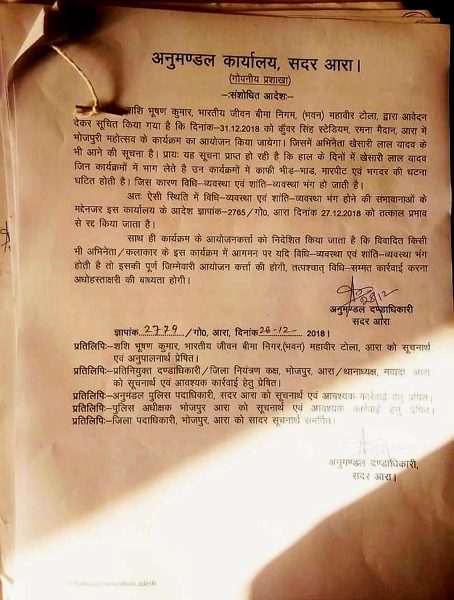 अनुमण्डल कार्यालय, सदर आरा।
(गोपनीय प्रशाखा)
-:संशोधित आदेश:-
शशि भूषण कुमार, भारतीय जीवन बीमा निगम, (भवन) महावीर टोला, द्वारा आवेदन
देकर सूचित किया गया है कि दिनांक-31.12.2018 को कुँवर सिंह स्टेडियम, रमना मैदान, आरा में
भोजपुरी महोत्सव के कार्यक्रम का आयोजन किया जायेगा। जिसमें अभिनेता खेसारी लाल यादव के
भी आने की सूचना है। प्रायः यह सूचना प्राप्त हो रही है कि हाल के दिनों में खेसारी लाल यादव
जिन कार्यक्रमों में भाग लेते है उन कार्यक्रमों में काफी भीड़-भाड, मारपीट एवं भगदर की घटना
घटित होती है। जिस कारण विधि-व्यवस्था एवं शांति-व्यवस्था भंग हो जाती है।
अतः ऐसी स्थिति में विधि-व्यवस्था एवं शांति-व्यवस्था भंग होने की संभावानाओं के
मद्देनजर इस कार्यालय के आदेश ज्ञापांक-2765/गो0, आरा दिनांक 27.12.2018 को तत्काल प्रभाव
से रद्द किया जाता है।
साथ ही कार्यक्रम के आयोजनकर्त्ता को निदेशित किया जाता है कि विवादित किसी
भी अभिनेता/कलाकार के इस कार्यक्रम में आगमन पर यदि विधि-व्यवस्था एवं शांति-व्यवस्था भंग
होती है तो इसकी पूर्ण जिम्मेवारी आयोजन कर्त्ता की होगी, तत्पश्चात् विधि-सम्मत कार्रवाई करना
अधोहस्ताक्षरी की बाध्यता होगी।
अनुमण्डल दण्डाधिकारी
सदर आरा
ज्ञापांक 2779 /गो0, आरा, दिनांक 26-12- 2018।
प्रतिलिपिः-शशि भूषण कुमार, भारतीय जीवन बीमा निगर,(भवन) महावीर टोला, आरा को सूचनार्थ
एवं अनुपालनार्थ प्रेषित।
प्रतिलिपिः-प्रतिनियुक्त दण्डाधिकारी/जिला नियंत्रण कक्ष, भोजपुर, आरा/थानाध्यक्ष, नवादा, आरा
को सूचनार्थ एवं आवश्यक कार्रवाई हेतु प्रेषित।
प्रतिलिपिः-अनुमंडल पुलिस पदाधिकारी, सदर आरा को सूचनार्थ एवं आवश्यक कार्रवाई हेतु प्रेषित।
प्रतिलिपिः-पुलिस अधीक्षक भोजपुर आरा को सूचनार्थ एवं आवश्यक कार्रवाई हेतु प्रेषित।
प्रतिलिपिः-जिला पदाधिकारी, भोजपुर, आरा को सादर सूचनार्थ समर्पित।
अनुमण्डल दण्डाधिकारी,
सदर आरा।